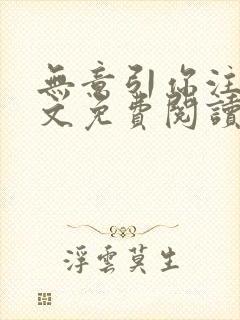 無意引你注
文免費閱讀
浮雲莫生